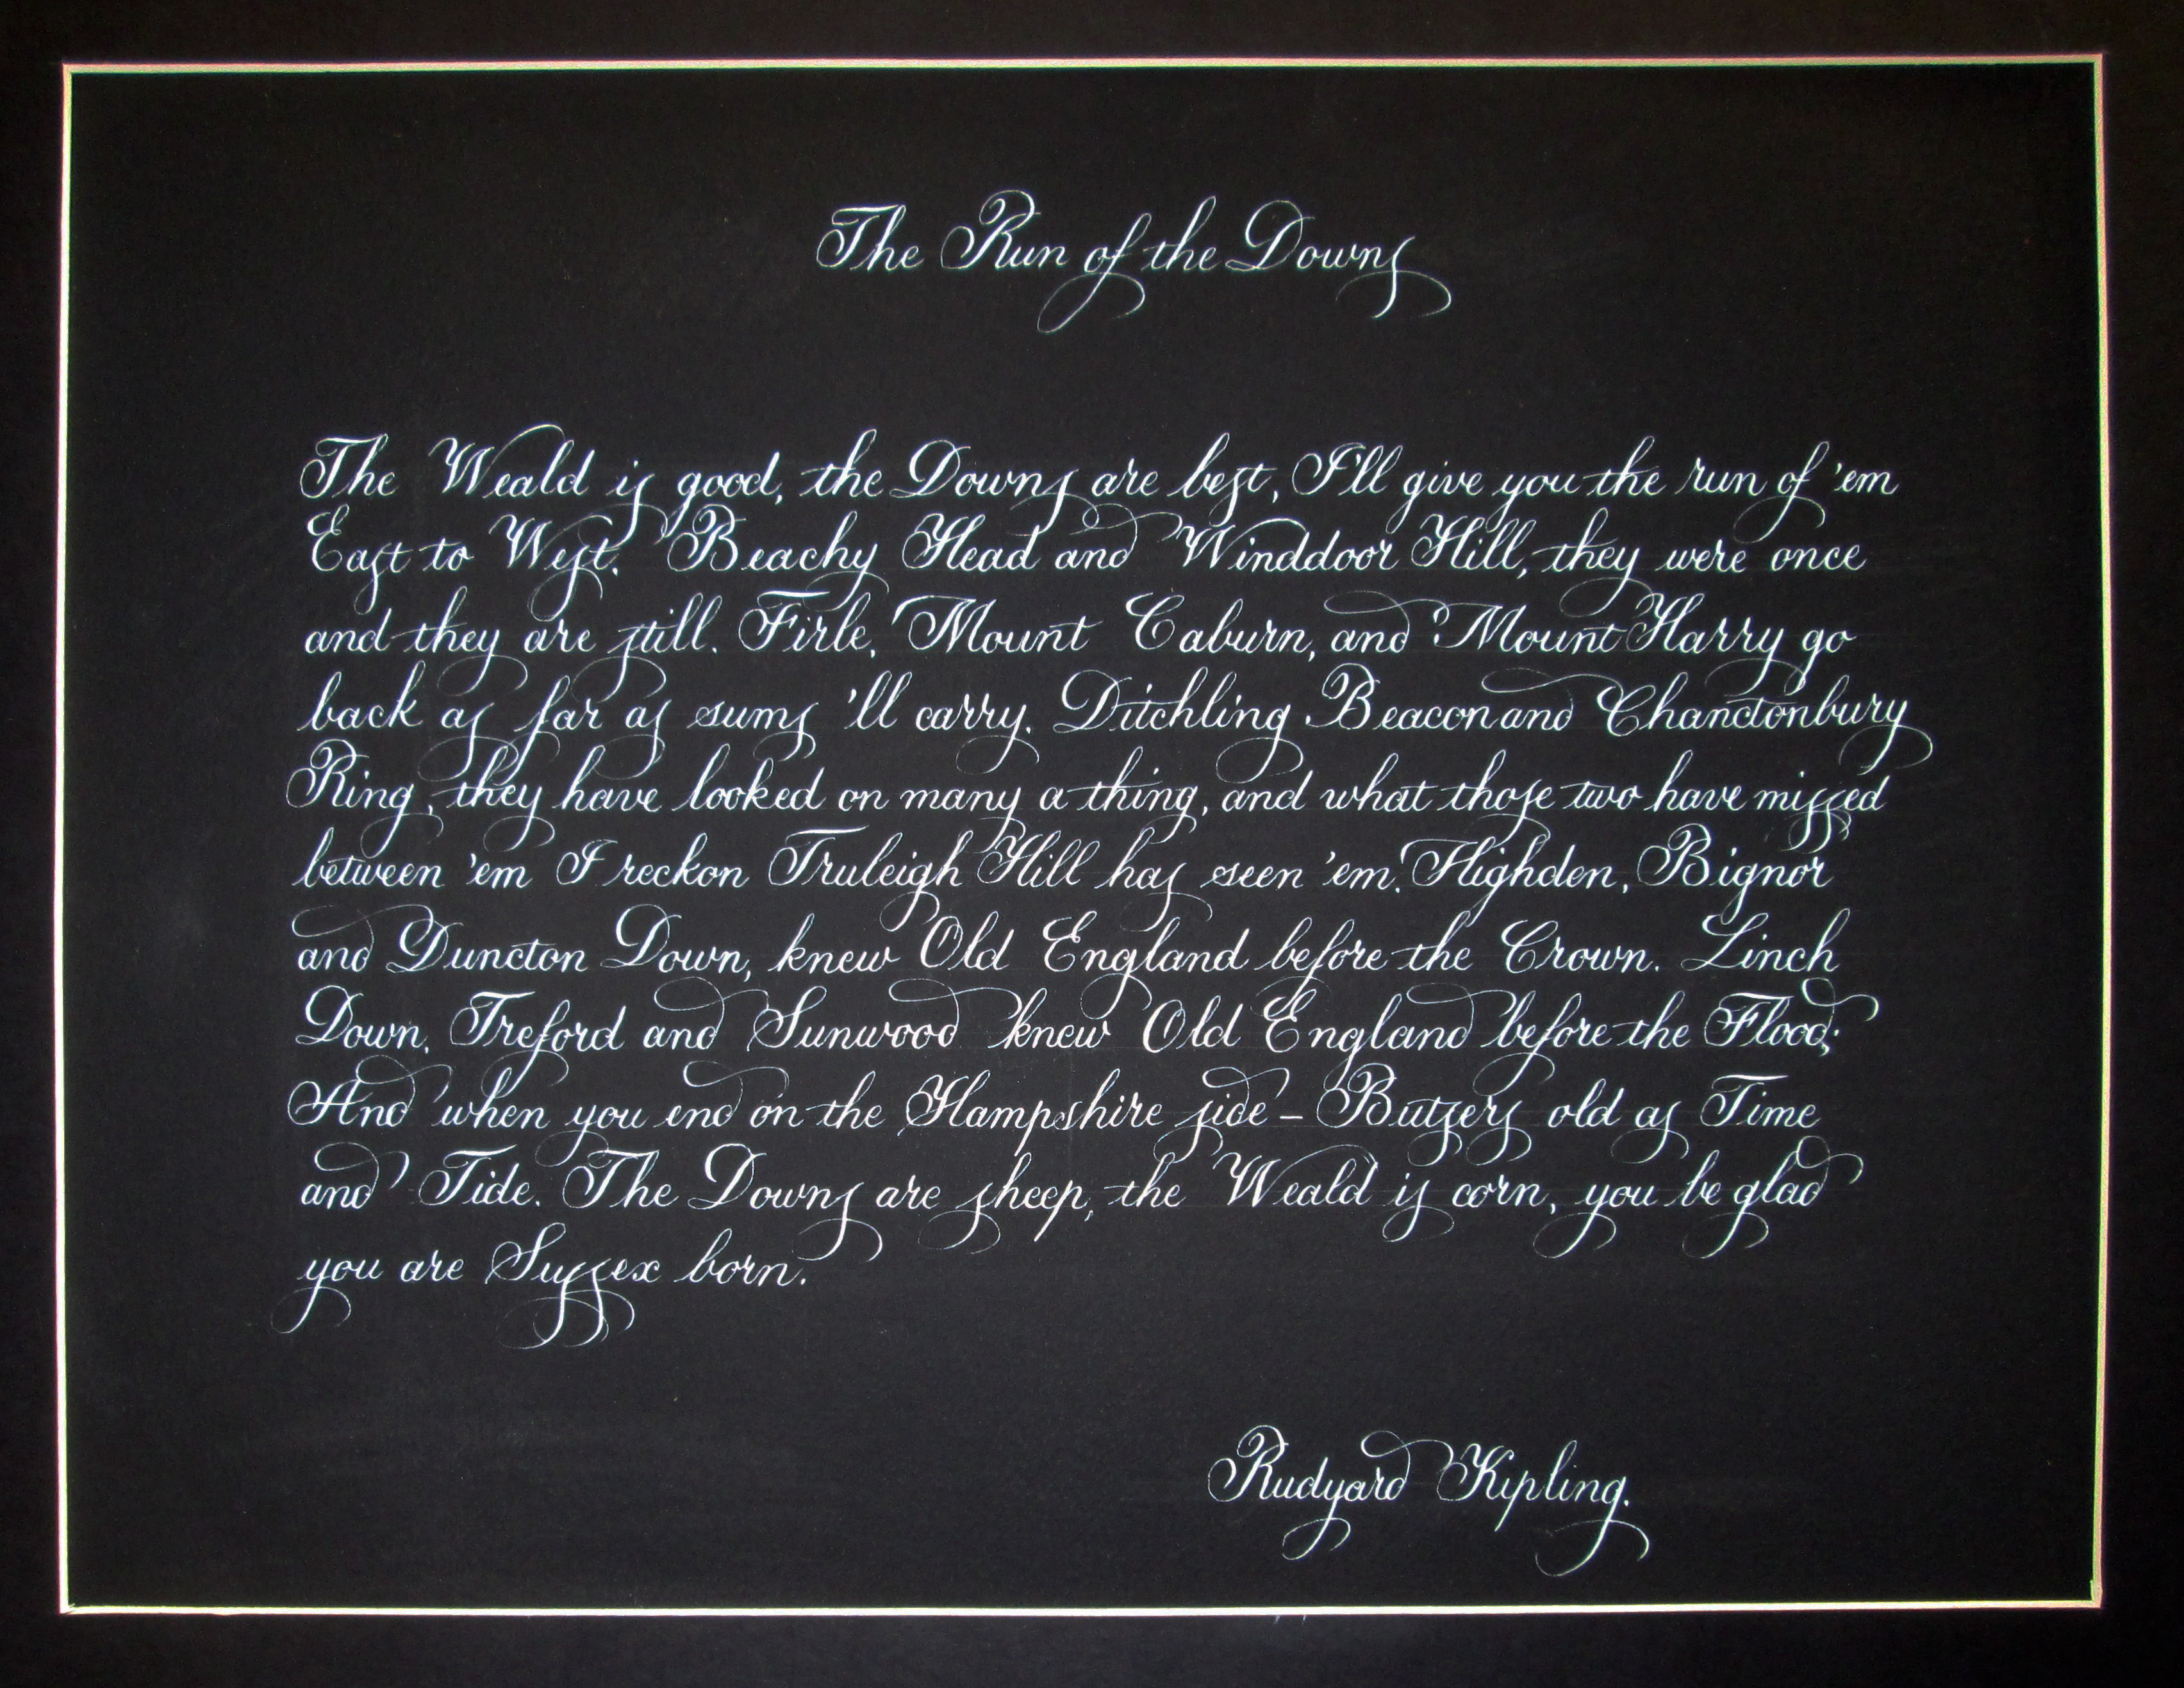 The Run of the Downs
The Weald is good, the Downs are best, I'll give you the run of 'em
East to West. Beachy Head and Winddoor Hill, they were once
and they are still. Firle, Mount Caburn, and Mount Harry go
back as far as sums 'll carry. Ditchling Beacon and Chanctonbury
Ring, they have looked on many a thing, and what those two have missed
between 'em I reckon Truleigh Hill has seen 'em. Highden, Bignor
and Duncton Down, knew Old England before the Crown. Linch
Down, Treford and Sunwood knew Old England before the Flood;
And when you end on the Hampshire side - Butsers old as Time
and Tide. The Downs are sheep, the Weald is corn, you be glad
you are Sussex born.
Rudyard Kipling.